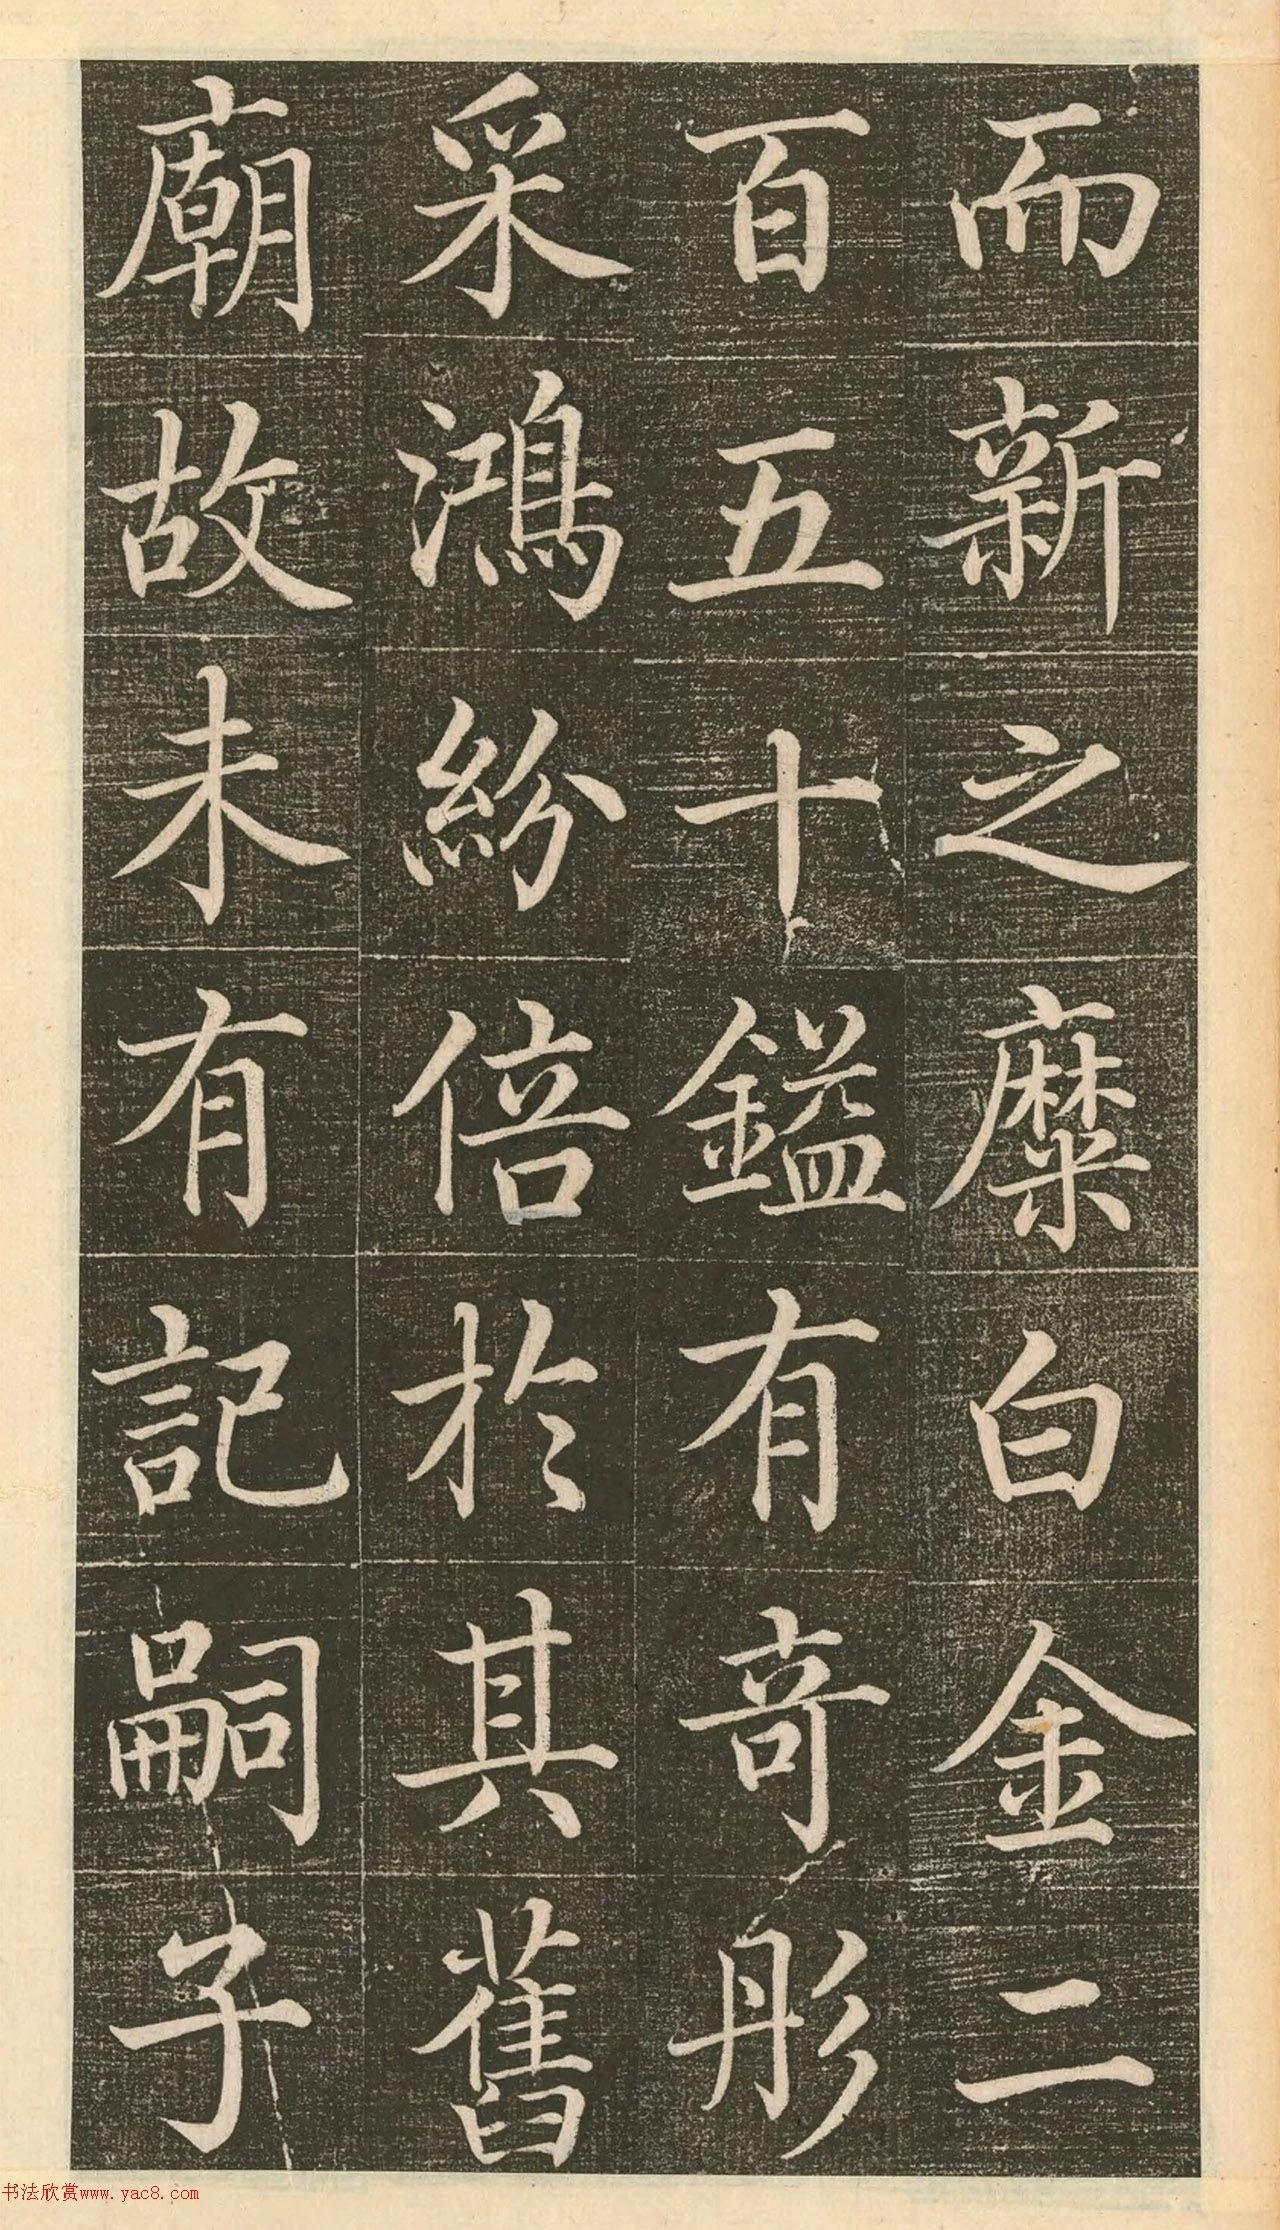 而新之糜白金二
百五十鎰有竒彤
采鴻紛倍於其舊
廟故未有記嗣子
书法欣赏www.yac8.com